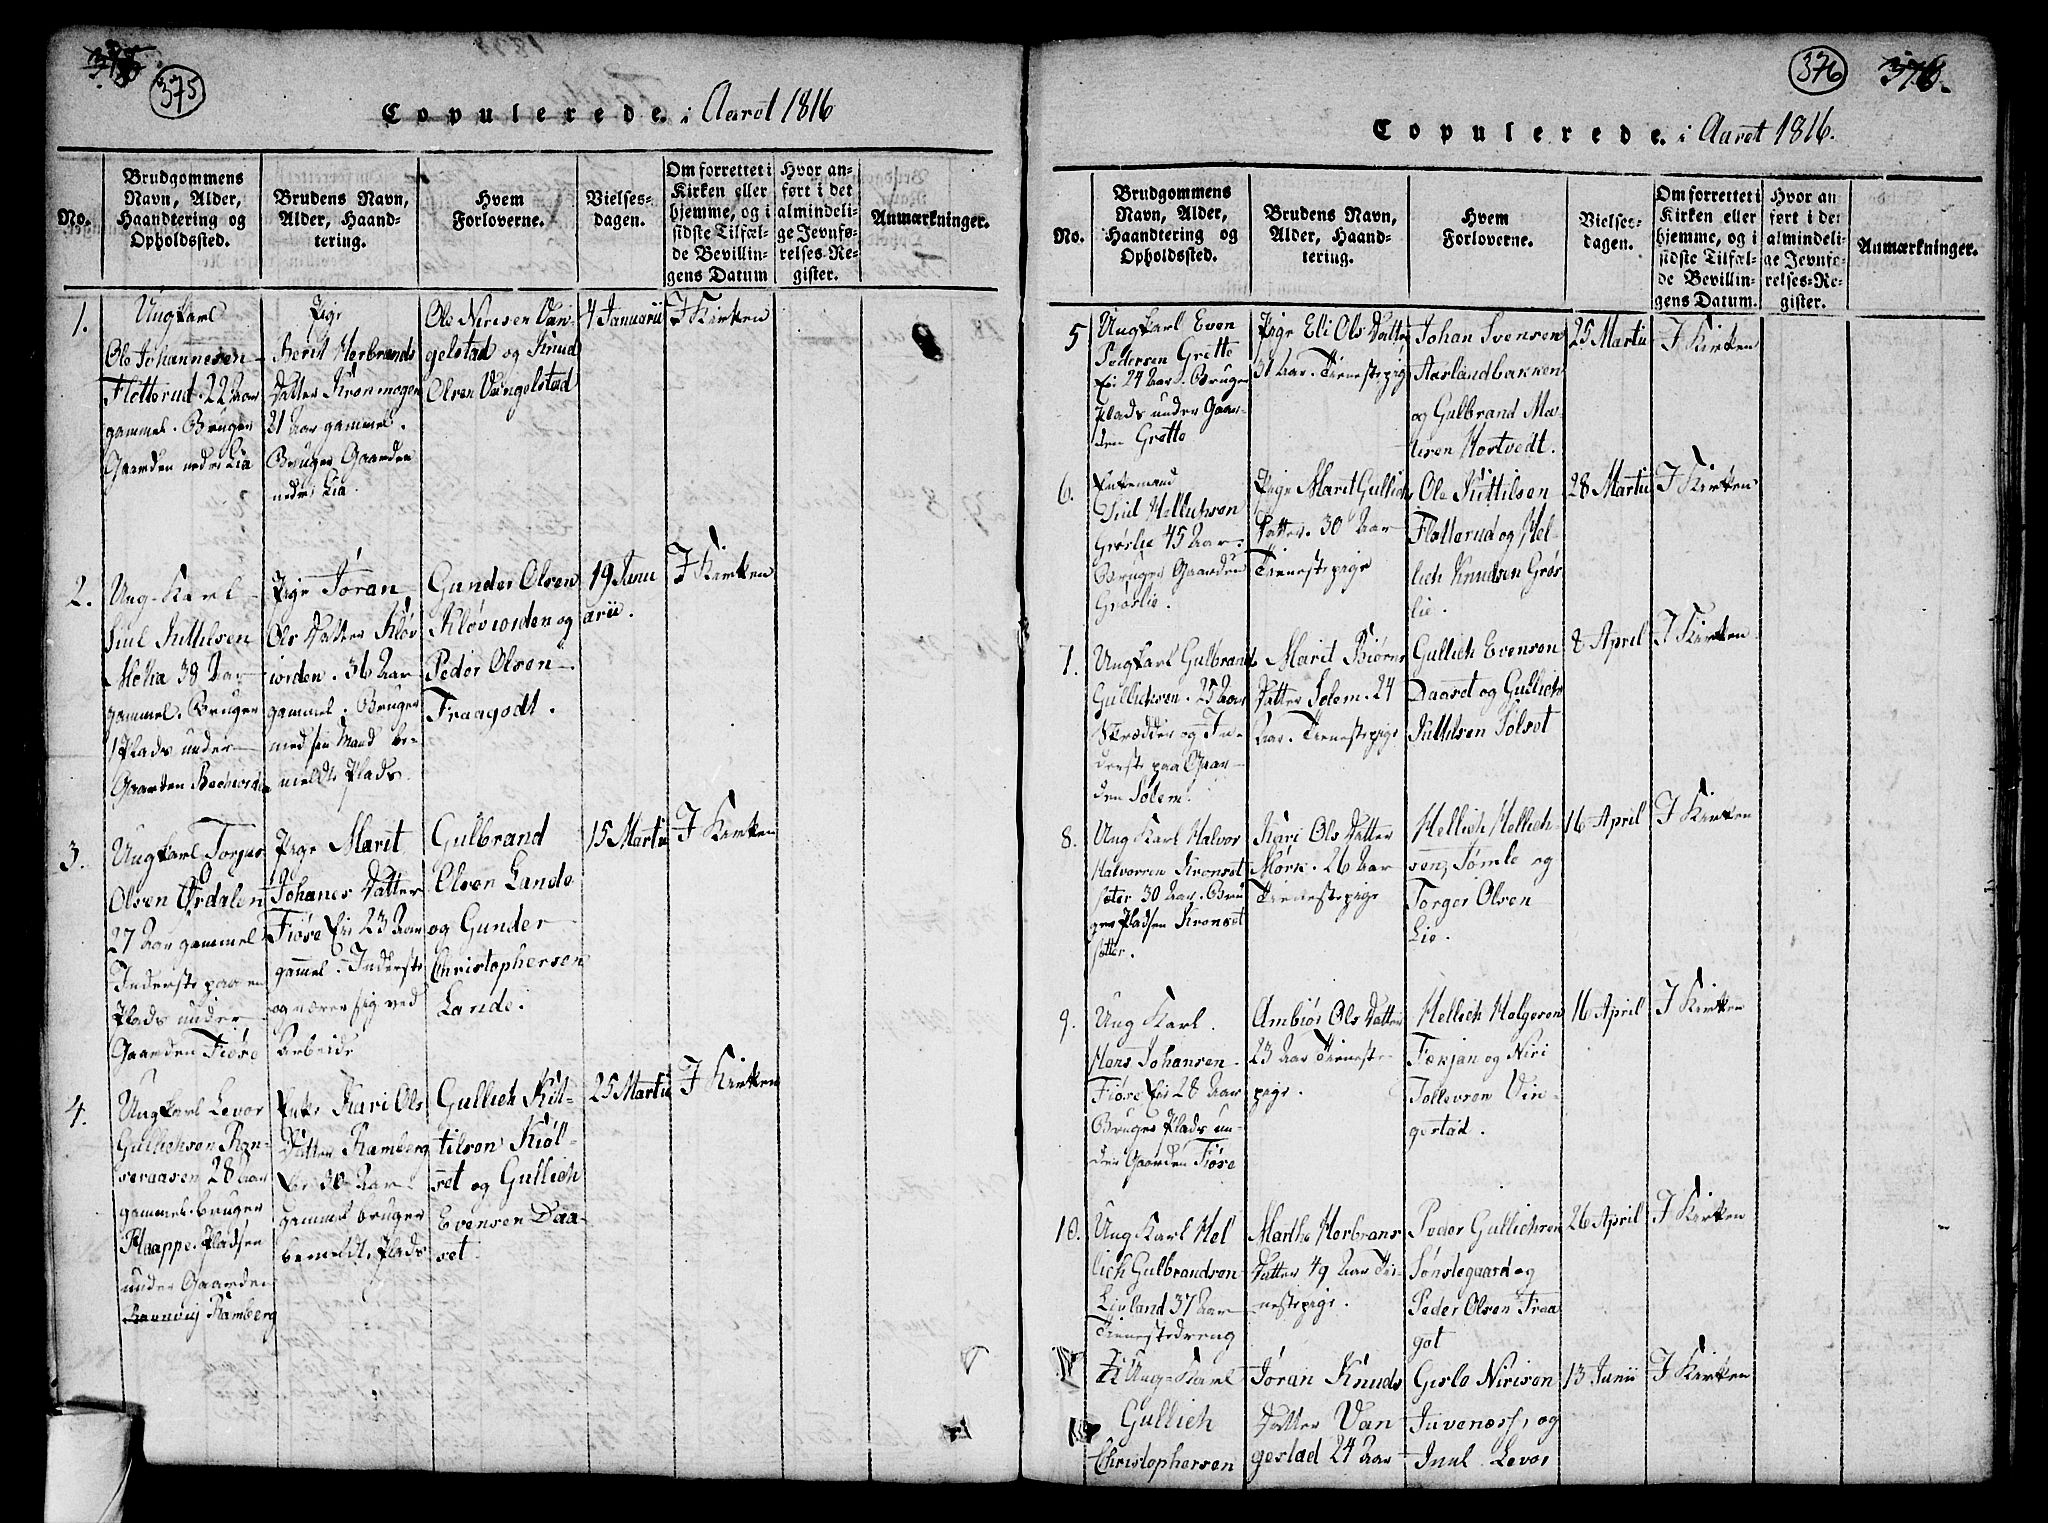 375
Copulerede i Aaret 1816
No.
Brudgommens
Navn, Alder,
Haandtering og
Opholdssted.
Brudens Navn,
Alder, Haand-
tering.
Hvem
Forloverne.
Vielses-
dagen.
Om forrettet i
Kirken eller
hjemme, og i
sidste Tilfæl-
de Bevillin-
gens Datum
Hvor an-
ført i det
almindeli-
ge Jevnfø-
relses-Re-
gister.
Anmærkninger.
1.
Ungkarl
Ole Johannesen
Flotterud. 22 Aar
gammel. Bruger
Gaarden nedre Lia
Pige
Berit Herbrands
Datter Kronmogen
21 Aar gammel.
Bruger Gaarden
nedre Lia.
Ole Nirisen Van-
gelstad og Knud
Olsen Vangelstad
4 Januarii
I Kirken
2.
Ung-Karl
Juul Kittilsen
38 Aar
gammel. Bruger
1 Plads under
Gaarden
Pige Jøran
Ols Datter Kløv
iorden. 36 Aar
gammel. Bruger
med sin Mand be-
meldte Plads.
Gunder Olsen
Kløviorden og
Peder Olsen
Fraagodt.
19 Janu
arii.
I Kirken
3.
Ungkarl Torjus
Olsen Ørdalen
27 Aar gammel
Inderste paa en
Plads under
Gaarden Fiøse
Pige Marit
Johanes Datter
Fiøse Ei 23 Aar
gammel. Inderste
og nærer sig ved
Arbeide
Gulbrand
Olsen Lande
og Gunder
Christophersen
Lande.
15 Martii
I Kirken
4.
Ungkarl Levor
Gullichsen Ran-
seraasen 28 Aar
gammel. bruger
Plaappe Pladsen
under Gaarden
Ramberg
Enke Kari Ols
Datter Ramberg
Ei 30 Aar
gammel bruger
bemeldte Plads
Gullich Kit-
tilsen Kiøl-
set og Gullich
Evensen Daa-
set.
25 Martii
I Kirken
376 376.
Copulerede i Aaret 1816.
No.
Brudgommens
Navn, Alder,
Haandtering og
Opholdssted.
Brudens Navn,
Alder, Haand-
tering.
Hvem
Forloverne.
Vielses-
dagen.
Om forrettet i
Kirken eller
hjemme, og i
sidste Tilfæl-
de Bevillin-
gens Datum.
Hvor an
ført i det
almindeli-
ge Jevnfø-
relses-Re-
gister.
Anmærkninger.
5
Ungkarl Even
Pedersen Grette
Ei 24 Aar. Bruger
Plads under Gaar-
den Grette
Pige Eli Ols Datter
31 Aar. Tienestepige
Johan Svensen
Aaslandbakken
og Gulbrand Ma-
tisen Hostvedt.
25 Martii
I Kirken
6.
Enkemand
Juul Hellichsen
Grøslie 45 Aar.
Bruger Gaarden
Grøslie.
Pige Marit Gullichs
Datter. 30 Aar
Tienestepige
Ole Kittilsen
Flotterud og Hel-
lich Knudsen Grøs
lie.
28 Martii
I Kirken
7.
Ungkarl Gulbrand
Gullichsen. 25 Aar
Skrædder og In-
derste paa Gaar-
den Solem.
Marit Biørns
Datter Solem. 24
Aar. Tienestepige
Gullich Evensen
Daaset og Gullich
Kittilsen Solset
8 April
I Kirken
8.
Ung Karl Halvor
Halvorsen Kronset
sæter 30 Aar. Bru
ger Pladsen Kronset
sætter.
Kari Ols Datter
Mørk. 26 Aar
Tienestepige
Hellich Hellich-
sen, Tømle og
Torger Olsen
Lie.
16 April
I Kirken
9.
Ung Karl.
Hans Johansen
Fiøse Ei 28 Aar
Bruger Plads un-
der Gaarden Fiøse
Ambiør Ols Datter
23 Aar Tieneste-
pige.
Hellich Holgersen
Fækjan og Niri
Tollevsen Vin-
gestad.
16 April
I Kirken
10.
Ung Karl Hel
lich Gulbrandsen
Liuland 37 Aar
Tienestedreng
Marthe Herbrans
Datter 49 Aar Tie-
nestepige.
Peder Gullichsen
Sønstegaard og
Peder Olsen Fraa
got
26 April
I Kirken
11
Ung-Karl
Gullich
Christophersen
Jøran Knuds
Datter Van
gestad 24 Aar
Gislo Nirison
Juvenæss, og
Juul Levor
13 Junii
I Kirken